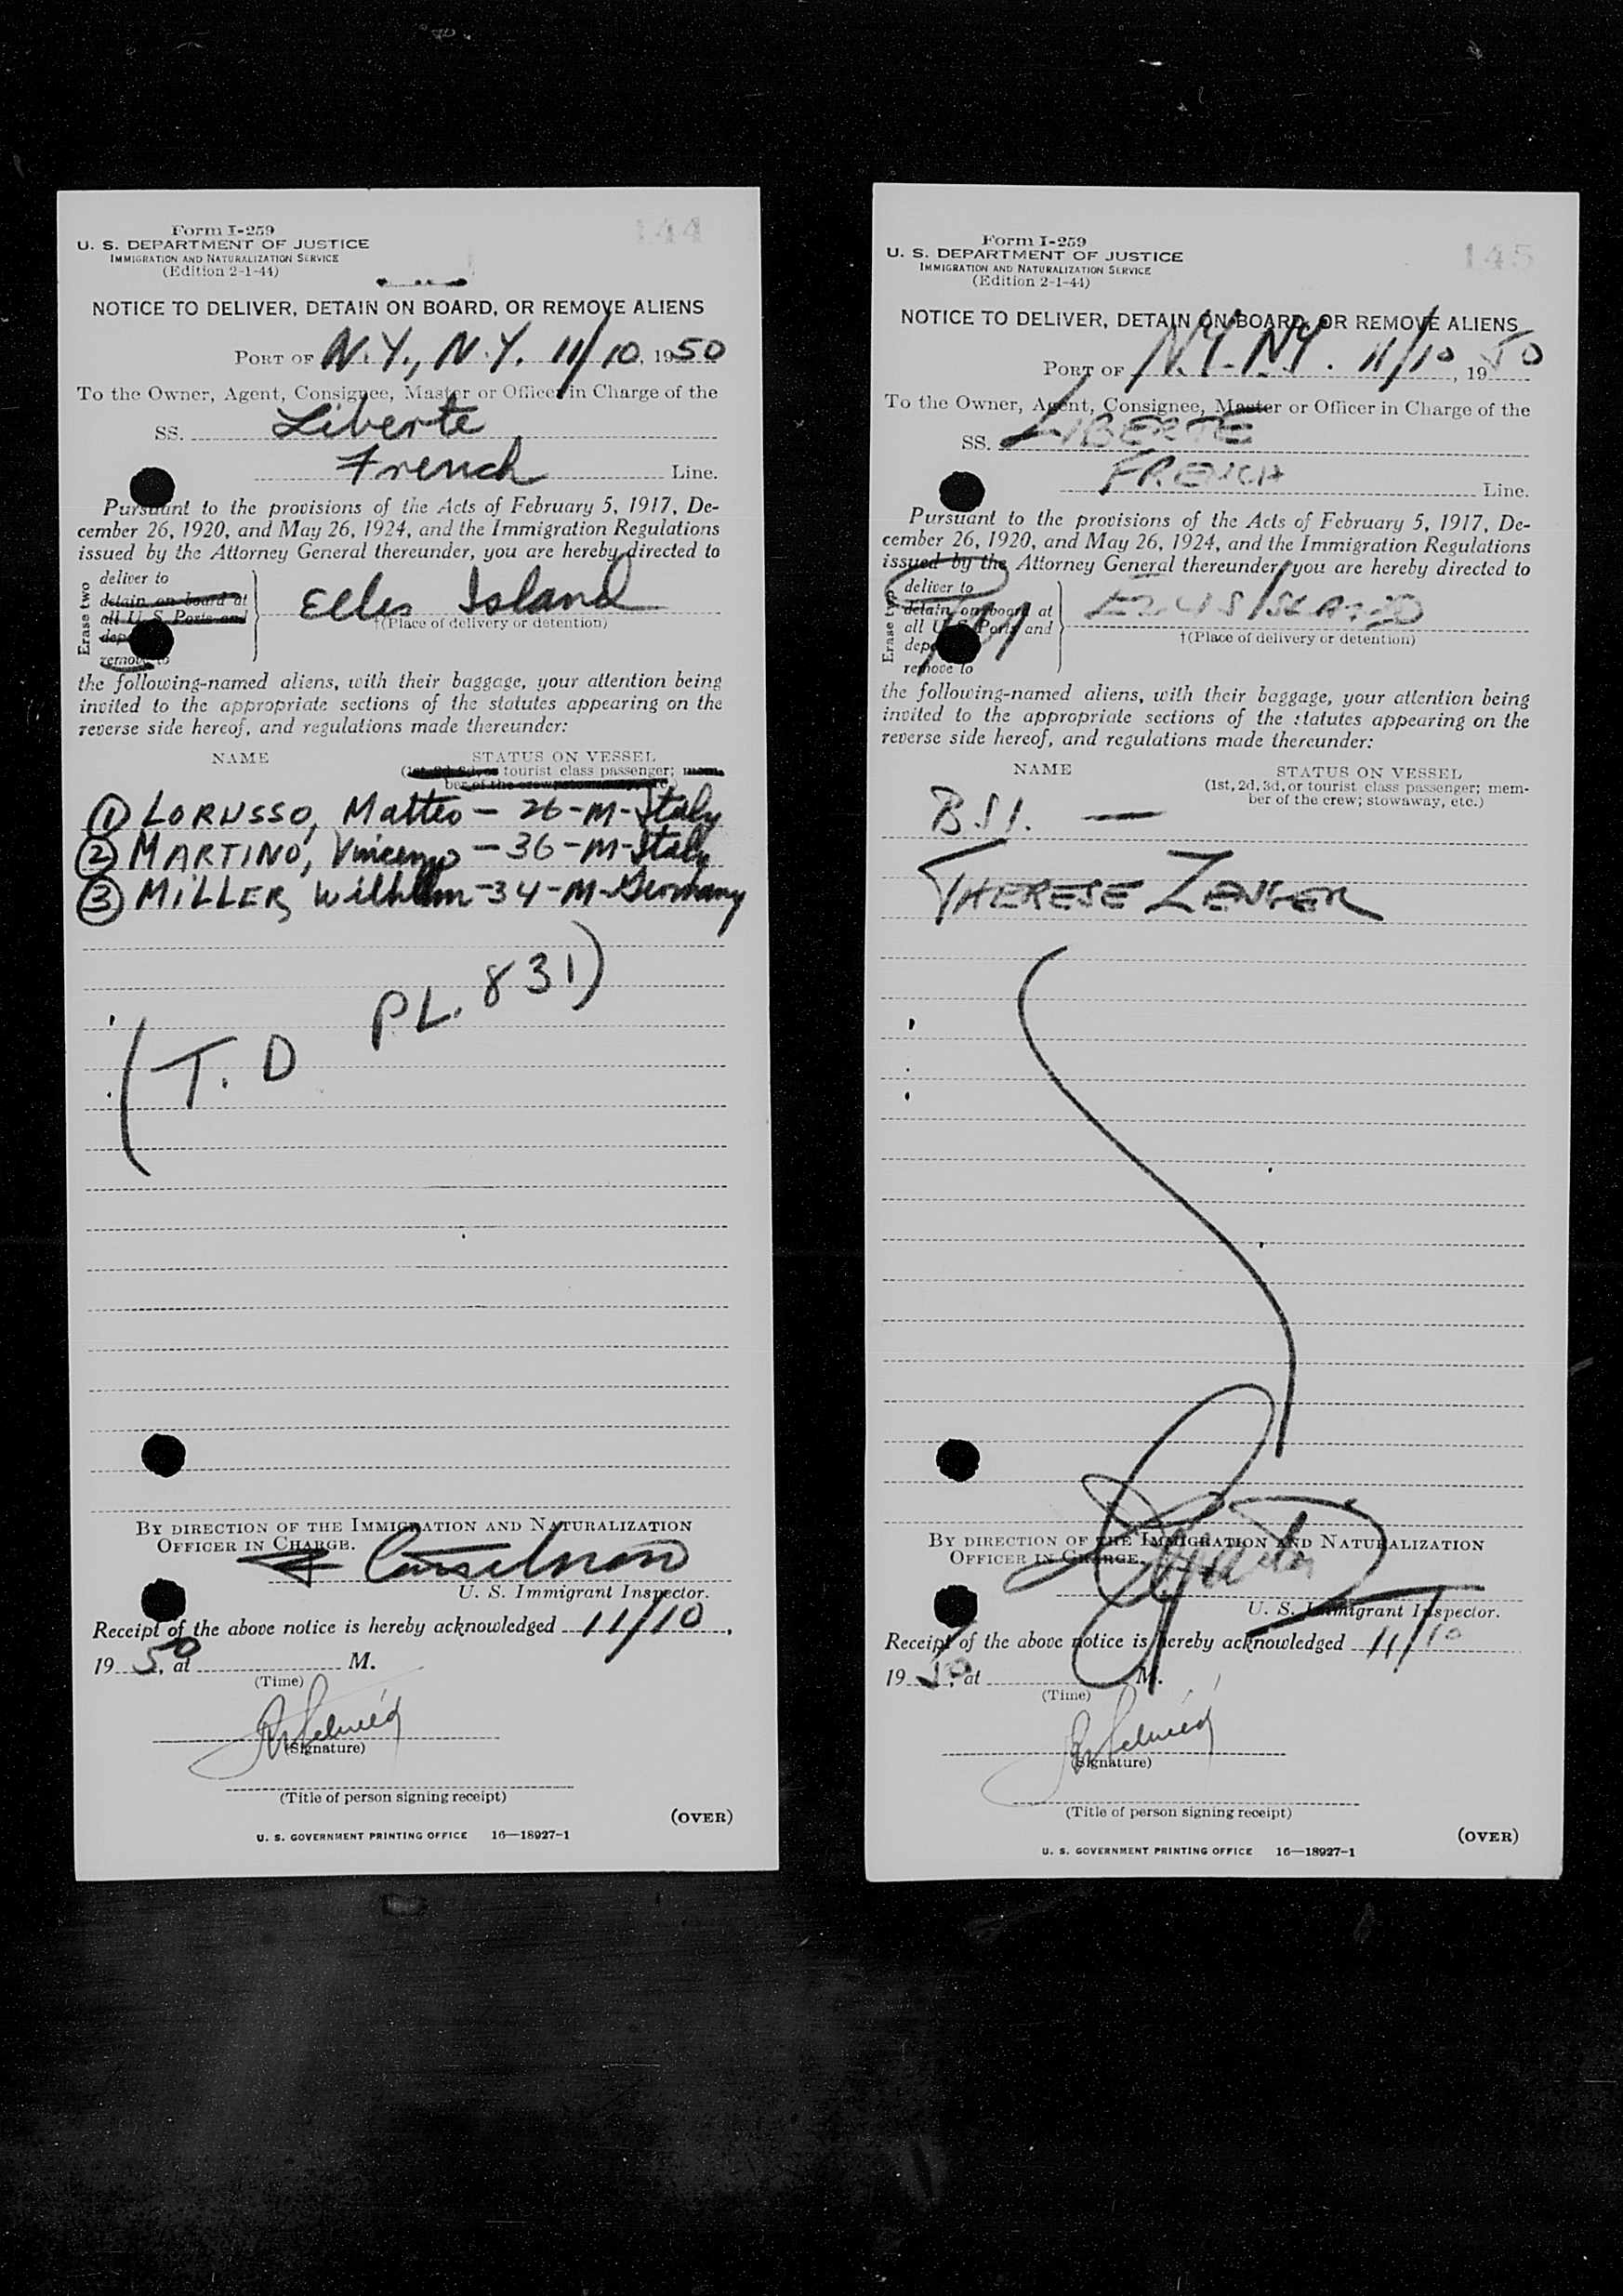 144
Form I-259
U. S. DEPARTMENT OF JUSTICE
IMMIGRATION AND NATURALIZATION SERVICE
(Edition 2-1-44)
NOTICE TO DELIVER, DETAIN ON BOARD, OR REMOVE ALIENS
PORT OF N.Y., N.Y. 11/10, 1950
To the Owner, Agent, Consignee, Master or Officer in Charge of the
SS. Liberte
French Line.
Pursuant to the provisions of the Acts of February 5, 1917, De-
cember 26, 1920, and May 26, 1924, and the Immigration Regulations
issued by the Attorney General thereunder, you are hereby directed to
Erase two
deliver to
detain on board at
all U. S. Ports and
dep
remove to
Ellis Island
†(Place of delivery or detention)
the following-named aliens, with their baggage, your attention being
invited to the appropriate sections of the statutes appearing on the
reverse side hereof, and regulations made thereunder:
NAME STATUS ON VESSEL
(1st, 2d, 3d, or tourist class passenger; mem-
ber of the crew; stowaway, etc.)
① LORUSSO, Matteo - 26 - M - Italy
② MARTINO, Vincenzo - 36 - M - Italy
③ MILLER, Wilhelm - 34 - M - Germany
(T. D PL. 831)
BY DIRECTION OF THE IMMIGRATION AND NATURALIZATION
OFFICER IN CHARGE.
U. S. Immigrant Inspector.
Receipt of the above notice is hereby acknowledged 11/10,
1950, at M.
(Time)
(Signature)
(Title of person signing receipt)
(OVER)
U. S. GOVERNMENT PRINTING OFFICE 16—18927-1
145
Form I-259
U. S. DEPARTMENT OF JUSTICE
IMMIGRATION AND NATURALIZATION SERVICE
(Edition 2-1-44)
NOTICE TO DELIVER, DETAIN ON BOARD, OR REMOVE ALIENS
PORT OF N.Y. N.Y. 11/10, 1950
To the Owner, Agent, Consignee, Master or Officer in Charge of the
SS. LIBERTE
FRENCH Line.
Pursuant to the provisions of the Acts of February 5, 1917, De-
cember 26, 1920, and May 26, 1924, and the Immigration Regulations
issued by the Attorney General thereunder, you are hereby directed to
Erase two
deliver to
detain on board at
all U. S. Ports and
dep
remove to
ELLIS ISLAND
†(Place of delivery or detention)
the following-named aliens, with their baggage, your attention being
invited to the appropriate sections of the statutes appearing on the
reverse side hereof, and regulations made thereunder:
NAME STATUS ON VESSEL
(1st, 2d, 3d, or tourist class passenger; mem-
ber of the crew; stowaway, etc.)
BSI. —
THERESE ZENGER
BY DIRECTION OF THE IMMIGRATION AND NATURALIZATION
OFFICER IN CHARGE.
U. S. Immigrant Inspector.
Receipt of the above notice is hereby acknowledged 11/10
1950, at M.
(Time)
(Signature)
(Title of person signing receipt)
(OVER)
U. S. GOVERNMENT PRINTING OFFICE 16—18927-1